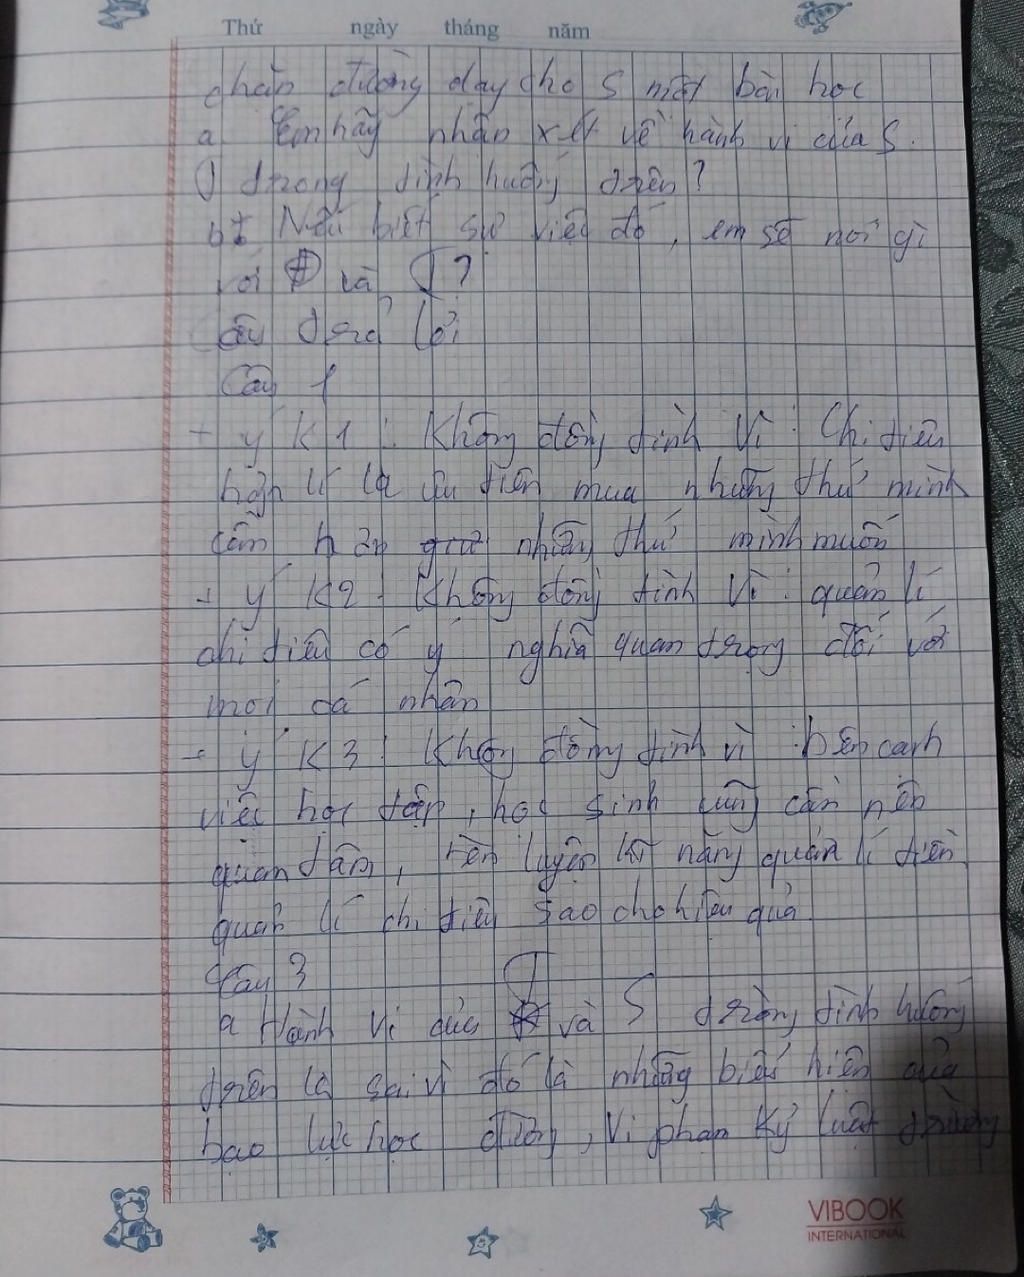 Thứ ngày tháng năm
chặn đường dạy cho S một bài học
a. Em hãy nhận xét về hành vi của S.
trong tình huống trên?
b. Nếu biết sự việc đó, em sẽ nói gì
với và T?
Câu trả lời
Câu 1
+ ý K1: Không đồng tình Vì: Chi tiêu
hợp lí là ưu tiên mua những thứ mình
cần hơn những thứ mình muốn
+ ý K2: Không đồng tình Vì: quản lí
chi tiêu có ý nghĩa quan trọng đối với
mọi cá nhân
+ ý K3: Không đồng tình vì: bên cạnh
việc học tập, học sinh cũng cần nên
quan tâm, rèn luyện kĩ năng quản lí tiền
quản lí chi tiêu sao cho hiệu quả
Câu 3
a Hành vi của T và S trong tình huống
trên là sai vì đó là những biểu hiện của
bạo lực học đường, Vi phạm kỷ luật trường
VIBOOK
INTERNATIONAL